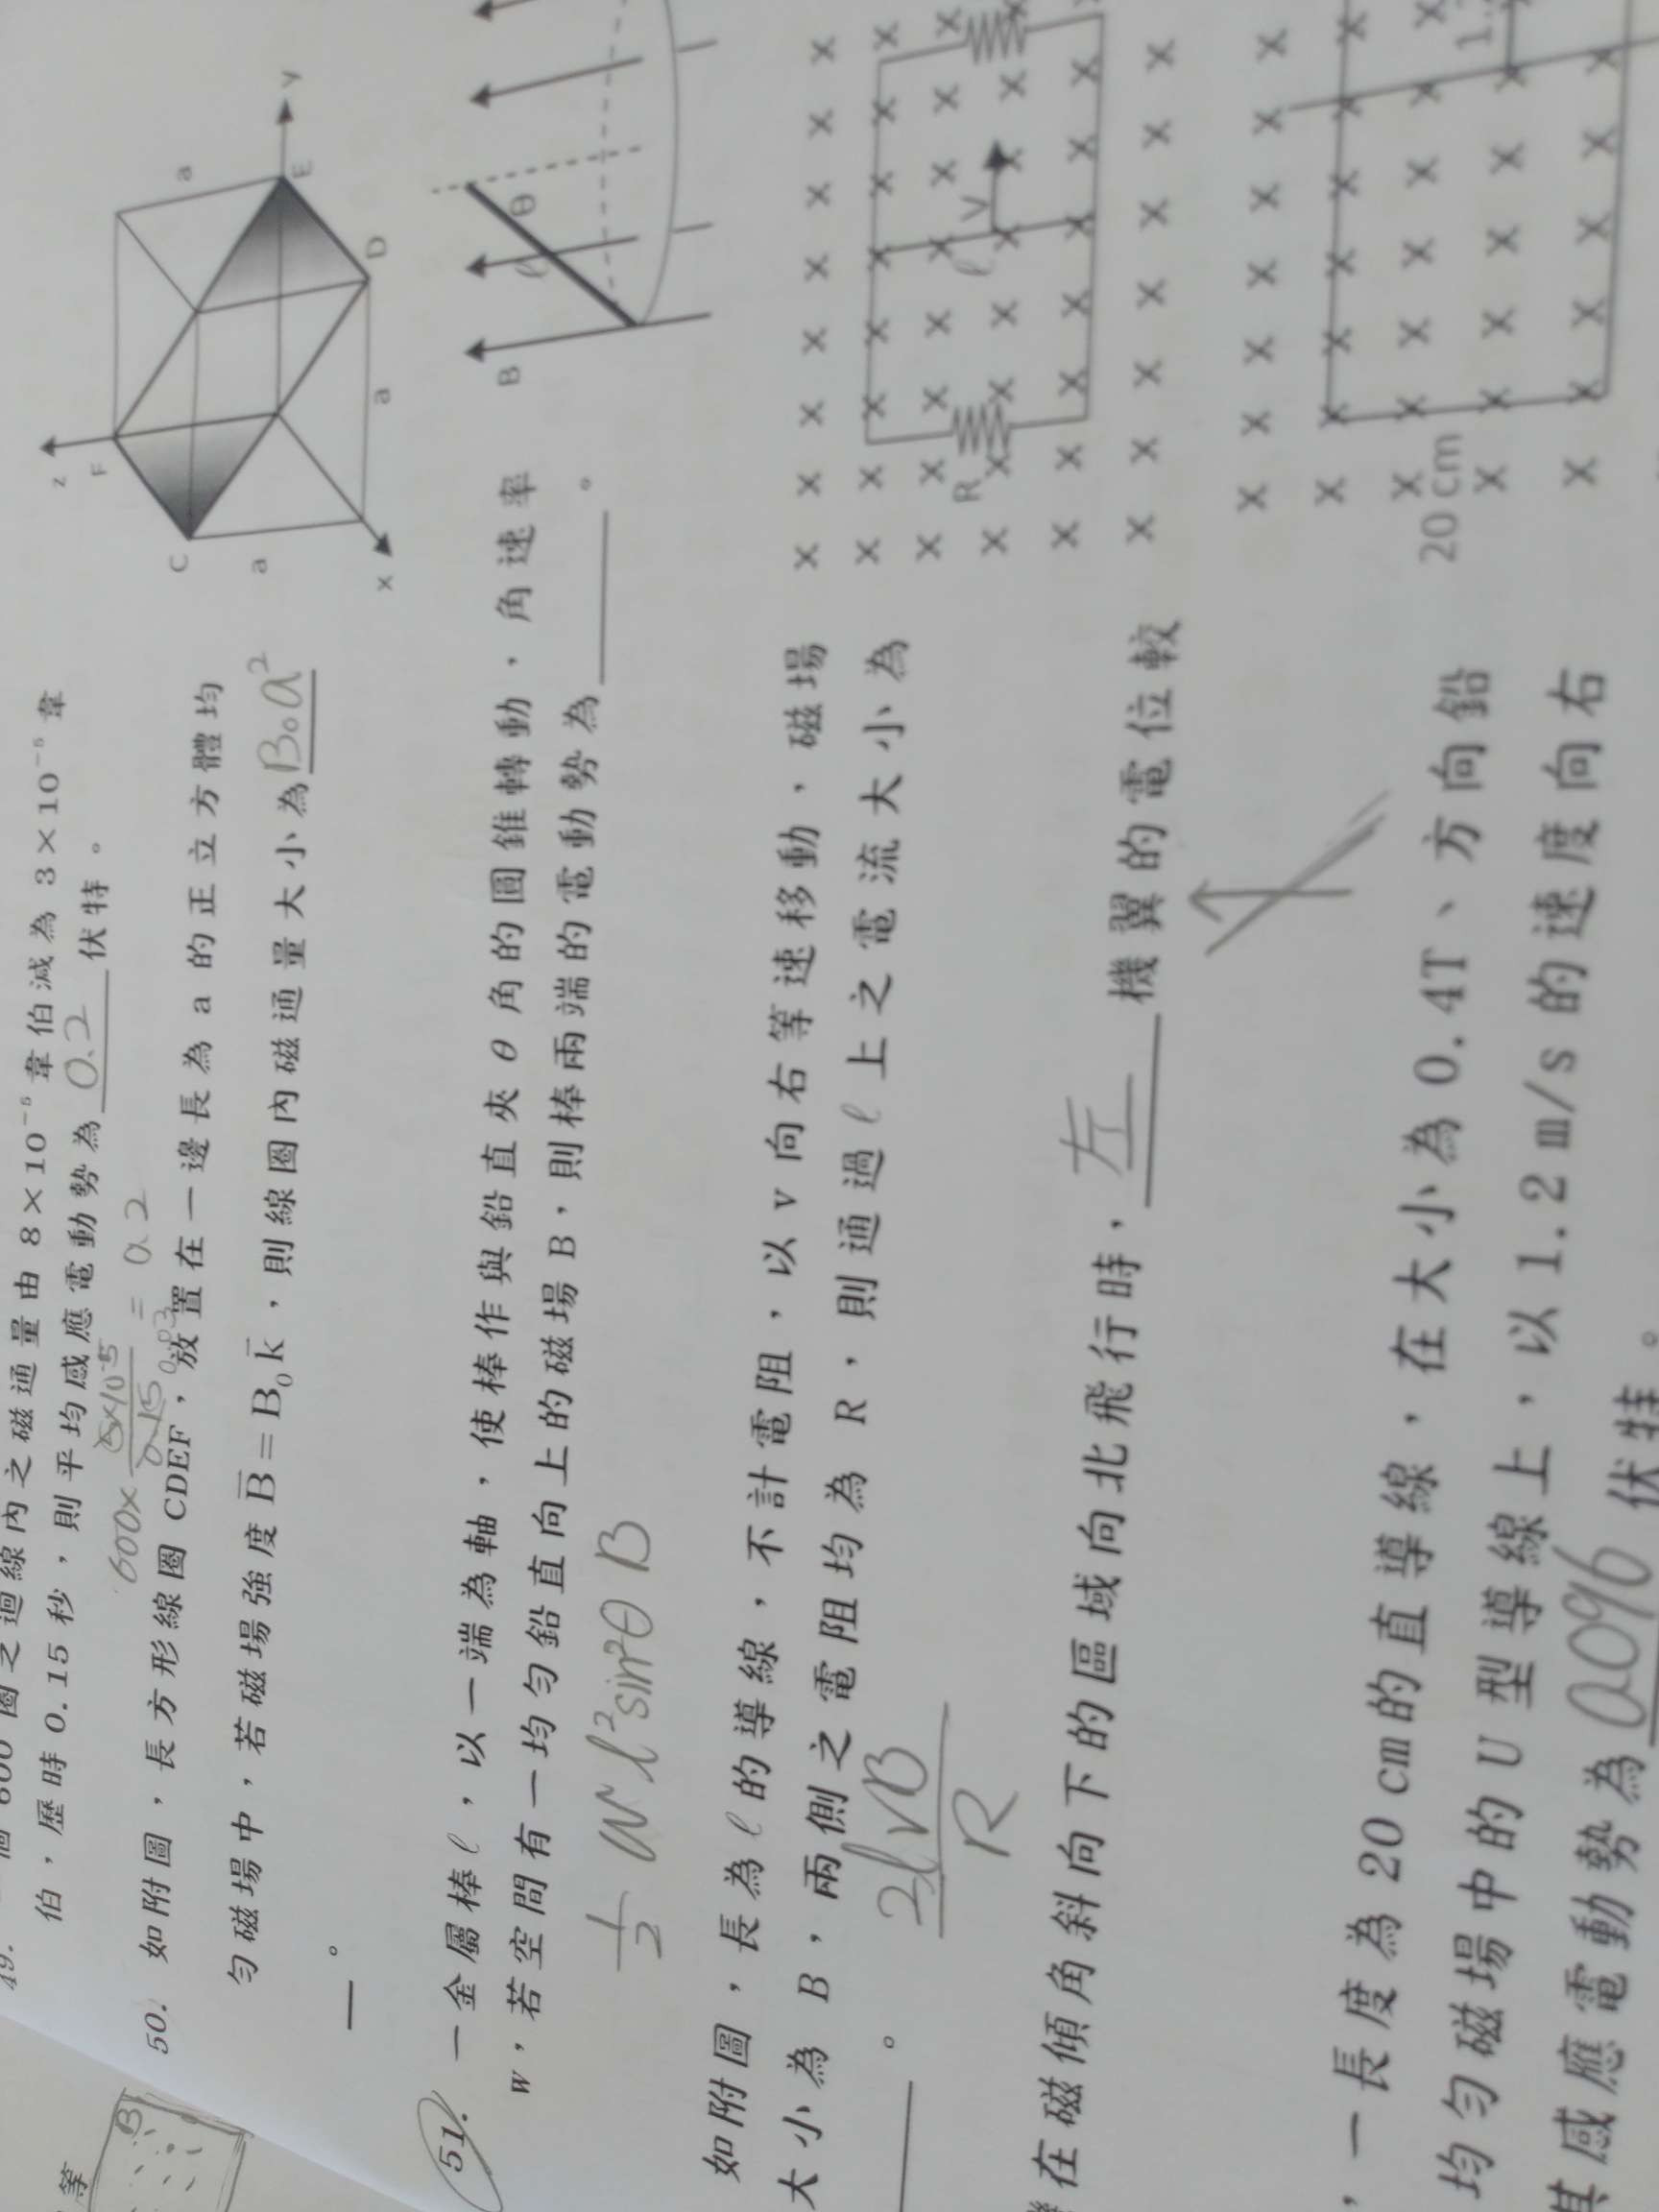 49.
圈之迴線內之磁通量由 8×10⁻⁵ 韋伯減為 3×10⁻⁵ 韋
伯，歷時 0.15 秒，則平均感應電動勢為 0.2 伏特。
600×
= 0.2
50. 如附圖，長方形線圈 CDEF，放置在一邊長為 a 的正立方體均
勻磁場中，若磁場強度 B̄=B₀k̄，則線圈內磁通量大小為 B₀a²
。
z
F
C
a
a
E
y
D
a
x
51. 一金屬棒ℓ，以一端為軸，使棒作與鉛直夾 θ 角的圓錐轉動，角速率
w，若空間有一均勻鉛直向上的磁場 B，則棒兩端的電動勢為 。
1/2 wℓ²sin²θB
B
ℓ
θ
如附圖，長為ℓ的導線，不計電阻，以 v 向右等速移動，磁場
大小為 B，兩側之電阻均為 R，則通過ℓ上之電流大小為
。
2ℓvB/R
R
ℓ
V
在磁傾角斜向下的區域向北飛行時， 左 機翼的電位較
，一長度為 20 cm的直導線，在大小為 0.4T、方向鉛
均勻磁場中的 U 型導線上，以 1.2 m/s 的速度向右
其感應電動勢為 0.096 伏特。
20 Cm
1.
等
B